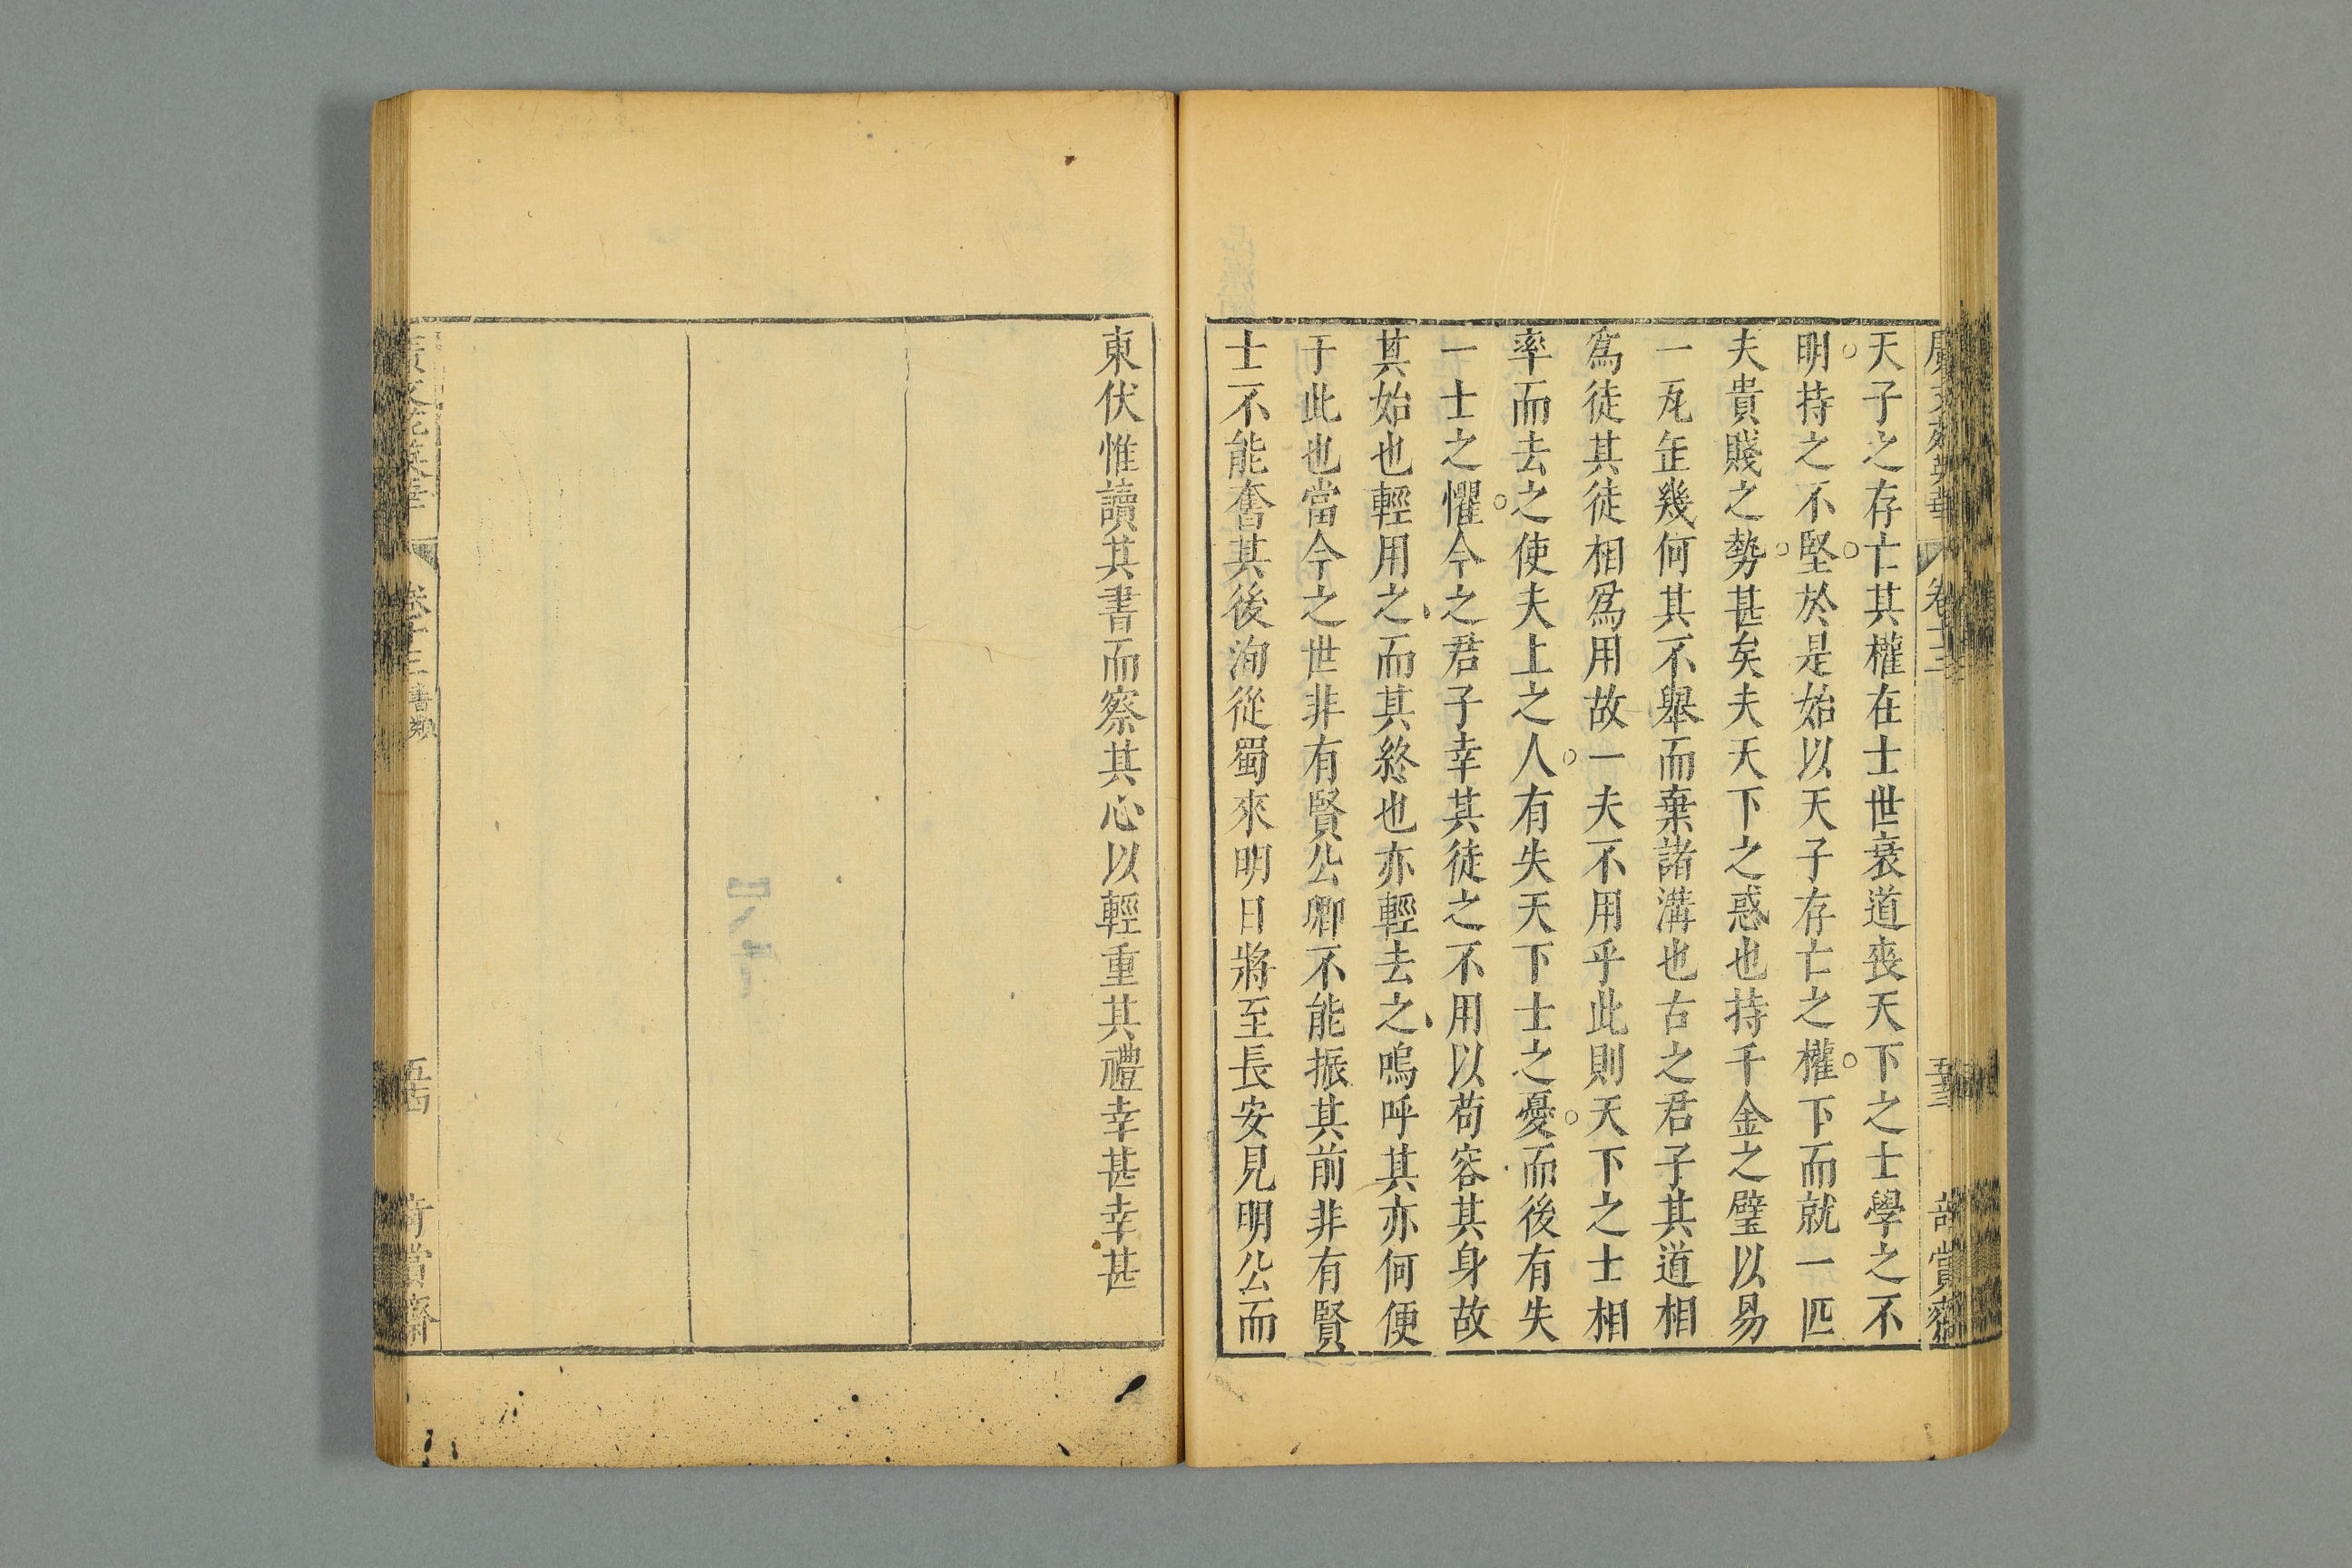 天子之存亡其權在士世衰道喪天下之士學之不
明持之不堅於是始以天子存亡之權下而就一匹
夫貴賤之勢甚矣夫天下之惑也持千金之璧以易
一瓦缶幾何其不舉而棄諸溝也古之君子其道相
爲徒其徒相爲用故一夫不用乎此則天下之士相
率而去之使夫上之人有失天下士之憂而後有失
一士之懼今之君子幸其徒之不用以苟容其身故
其始也輕用之而其終也亦輕去之嗚呼其亦何便
于此也當今之世非有賢公卿不能振其前非有賢
士不能奮其後洵從蜀來明日將至長安見明公而
東伏惟讀其書而察其心以輕重其禮幸甚幸甚
卷十三 書類
五十四
奇賞齋